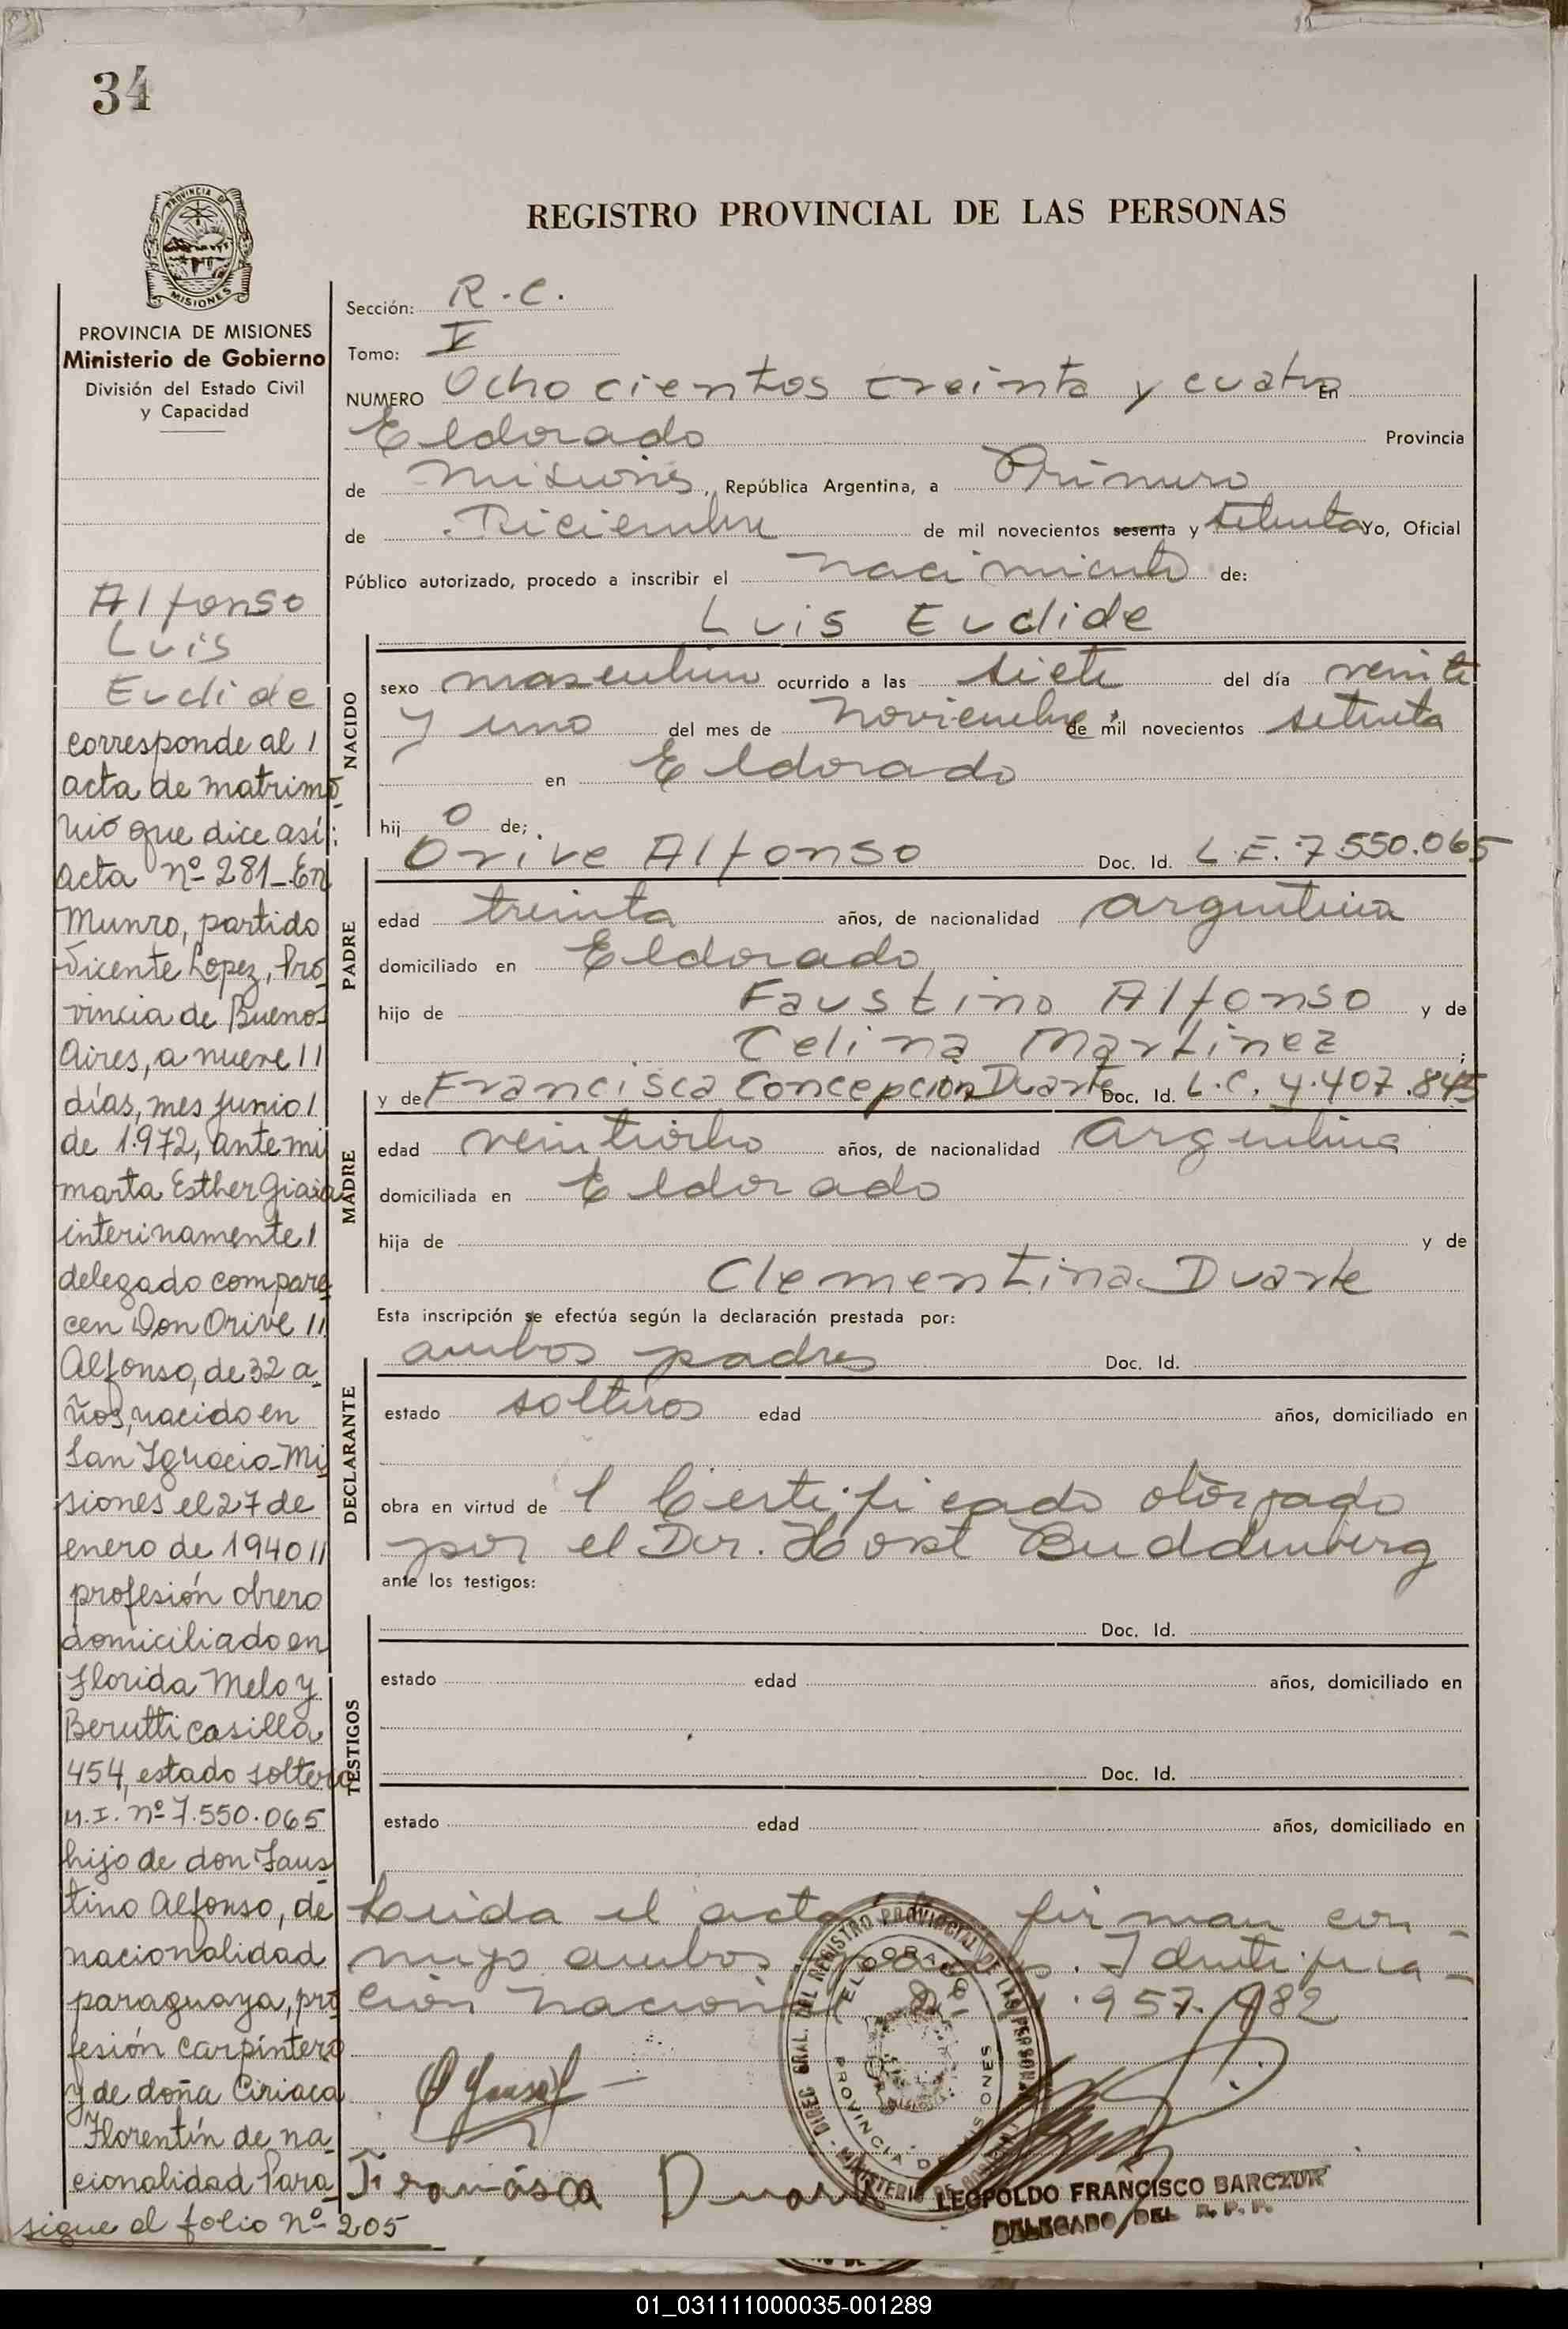 34
PROVINCIA DE
MISIONES
PROVINCIA DE MISIONES
Ministerio de Gobierno
División del Estado Civil
y Capacidad
Alfonso
Luis
Euclide
corresponde al /
acta de matrimo
nio que dice así:
acta nº 281_En
Munro, partido
Vicente Lopez, Pro
vincia de Buenos
Aires, a nueve //
días, mes junio /
de 1.972, ante mi
marta Esther
interinamente /
delegado compare
cen Don Orive //
Alfonso, de 32 a
ños, nacido en
San Ignacio-Mi
siones el 27 de
enero de 1940 //
profesión obrero
domiciliado en
Florida Melo y
Berutti casilla
454, estado soltero
M.I. nº 7.550.065
hijo de don Faus
tino Alfonso, de
nacionalidad
paraguaya, pro
fesión carpintero
y de doña Ciriaca
Florentín de na
cionalidad Para
sigue al folio Nº 205
REGISTRO PROVINCIAL DE LAS PERSONAS
Sección: R.C.
Tomo: V
NUMERO Ocho cientos treinta y cuatro En
Eldorado Provincia
de Misiones, República Argentina, a Primero
de Diciembre de mil novecientos sesenta y setenta Yo, Oficial
Público autorizado, procedo a inscribir el nacimiento de:
Luis Euclide
NACIDO
sexo masculino ocurrido a las siete del día veinte
y uno del mes de noviembre de mil novecientos setenta
en Eldorado
hij o de;
Orive Alfonso Doc. Id. L.E. 7.550.065
PADRE
edad treinta años, de nacionalidad argentina
domiciliado en Eldorado,
hijo de Faustino Alfonso y de
Celina Martinez ;
y de Francisca Concepción Duarte Doc. Id. L.C. 4.407.845
MADRE
edad veintiocho años, de nacionalidad argentina
domiciliada en Eldorado
hija de y de
Clementina Duarte
Esta inscripción se efectúa según la declaración prestada por:
ambos padres Doc. Id.
DECLARANTE
estado solteros edad años, domiciliado en
obra en virtud de 1 Certificado otorgado
por el Dr. Host Buddenberg
ante los testigos:
TESTIGOS
Doc. Id.
estado edad años, domiciliado en
Doc. Id.
estado edad años, domiciliado en
Leida el acta firman con-
migo ambos padres. Identifica-
ción Nacional 957.982
DIREC. GRAL. DEL REGISTRO PROVINCIAL DE LAS PERSONAS
MINISTERIO DE GOBIERNO
ELDORADO
PROVINCIA DE MISIONES
Francisca Duarte
LEOPOLDO FRANCISCO BARCZUK
DELEGADO DEL R. P. P.
01_031111000035-001289